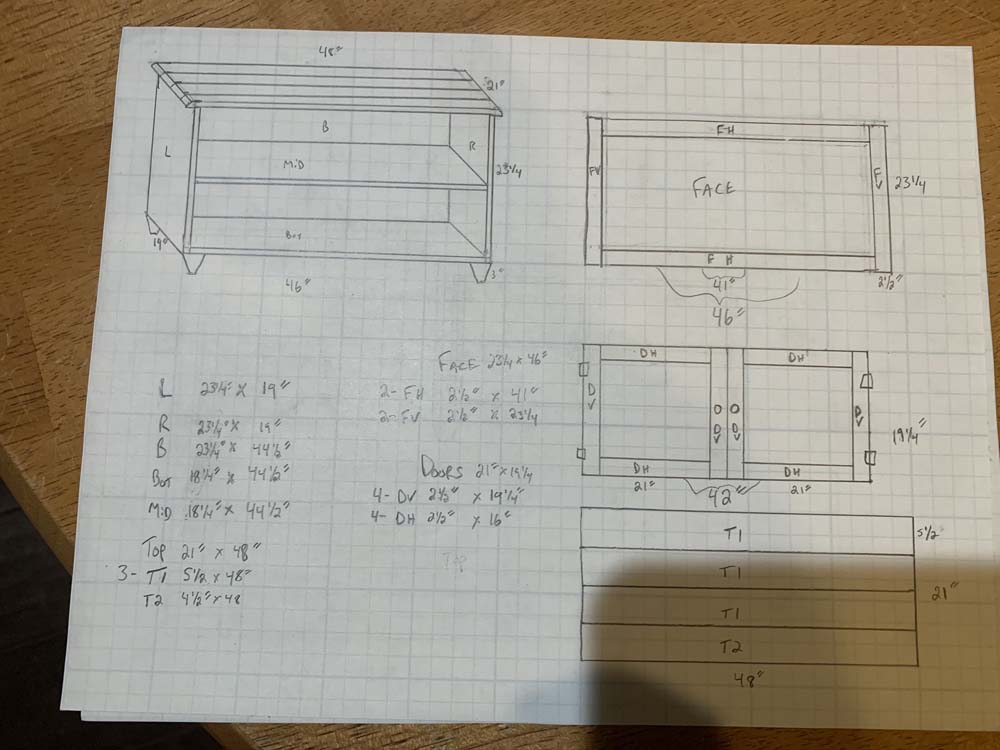 48"
21"
B
L
R
MiD
23 1/4
Bot
19"
3"
46"
FH
FV
FACE
FV
23 1/4
F H
41"
2 1/2"
46"
L 23 1/4" x 19"
R 23 1/4" x 19"
B 23 1/4" x 44 1/2"
Bot 18 1/4" x 44 1/2"
MiD 18 1/4" x 44 1/2"
Top 21" x 48"
3- T1 5 1/2 x 48"
T2 4 1/2" x 48
FACE 23 1/4 x 46"
2- FH 2 1/2" x 41"
2- FV 2 1/2" x 23 1/4
DOORS 21" x 19 1/4
4- DV 2 1/2" x 19 1/4"
4- DH 2 1/2" x 16"
DH
DH
DV
DV
19 1/4"
DH
DH
21"
42"
21"
T1
5 1/2"
T1
21"
T1
T2
48"